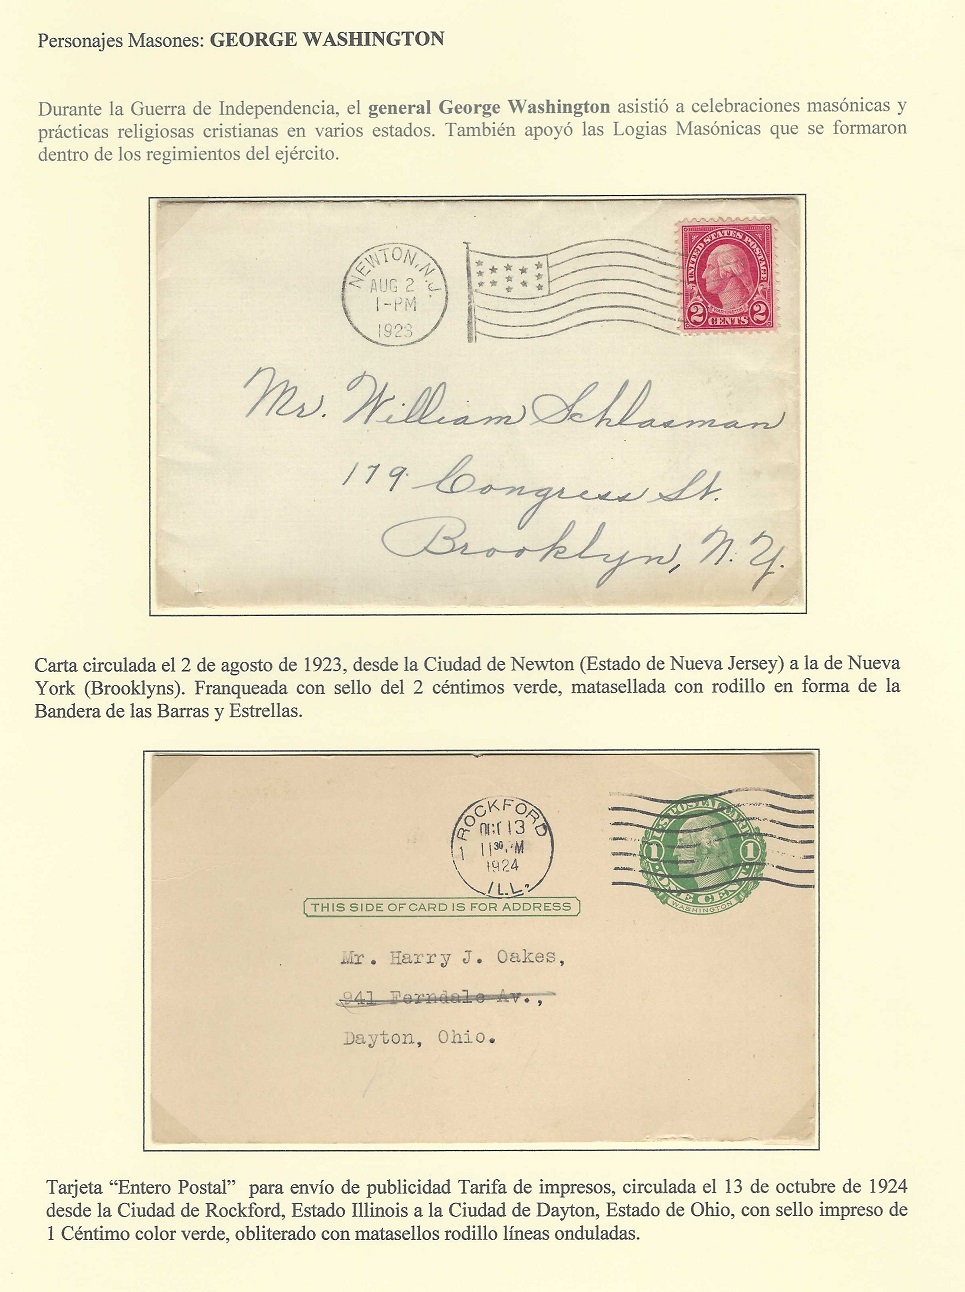 Personajes Masones: GEORGE WASHINGTON
Durante la Guerra de Independencia, el general George Washington asistió a celebraciones masónicas y
prácticas religiosas cristianas en varios estados. También apoyó las Logias Masónicas que se formaron
dentro de los regimientos del ejército.
NEWTON, N.J.
AUG 2
1-PM
1923
UNITED STATES POSTAGE
WASHINGTON
2 CENTS 2
Mr. William Schlasman
179 Congress St.
Brooklyn, N.Y.
Carta circulada el 2 de agosto de 1923, desde la Ciudad de Newton (Estado de Nueva Jersey) a la de Nueva
York (Brooklyns). Franqueada con sello del 2 céntimos verde, matasellada con rodillo en forma de la
Bandera de las Barras y Estrellas.
ROCKFORD
OCT 13
1 1130 M
1924
ILL.
U.S. POSTAL CARD
1 1
ONE CENT
WASHINGTON
THIS SIDE OF CARD IS FOR ADDRESS
Mr. Harry J. Oakes,
941 Ferndale Av.,
Dayton, Ohio.
Tarjeta “Entero Postal” para envío de publicidad Tarifa de impresos, circulada el 13 de octubre de 1924
desde la Ciudad de Rockford, Estado Illinois a la Ciudad de Dayton, Estado de Ohio, con sello impreso de
1 Céntimo color verde, obliterado con matasellos rodillo líneas onduladas.